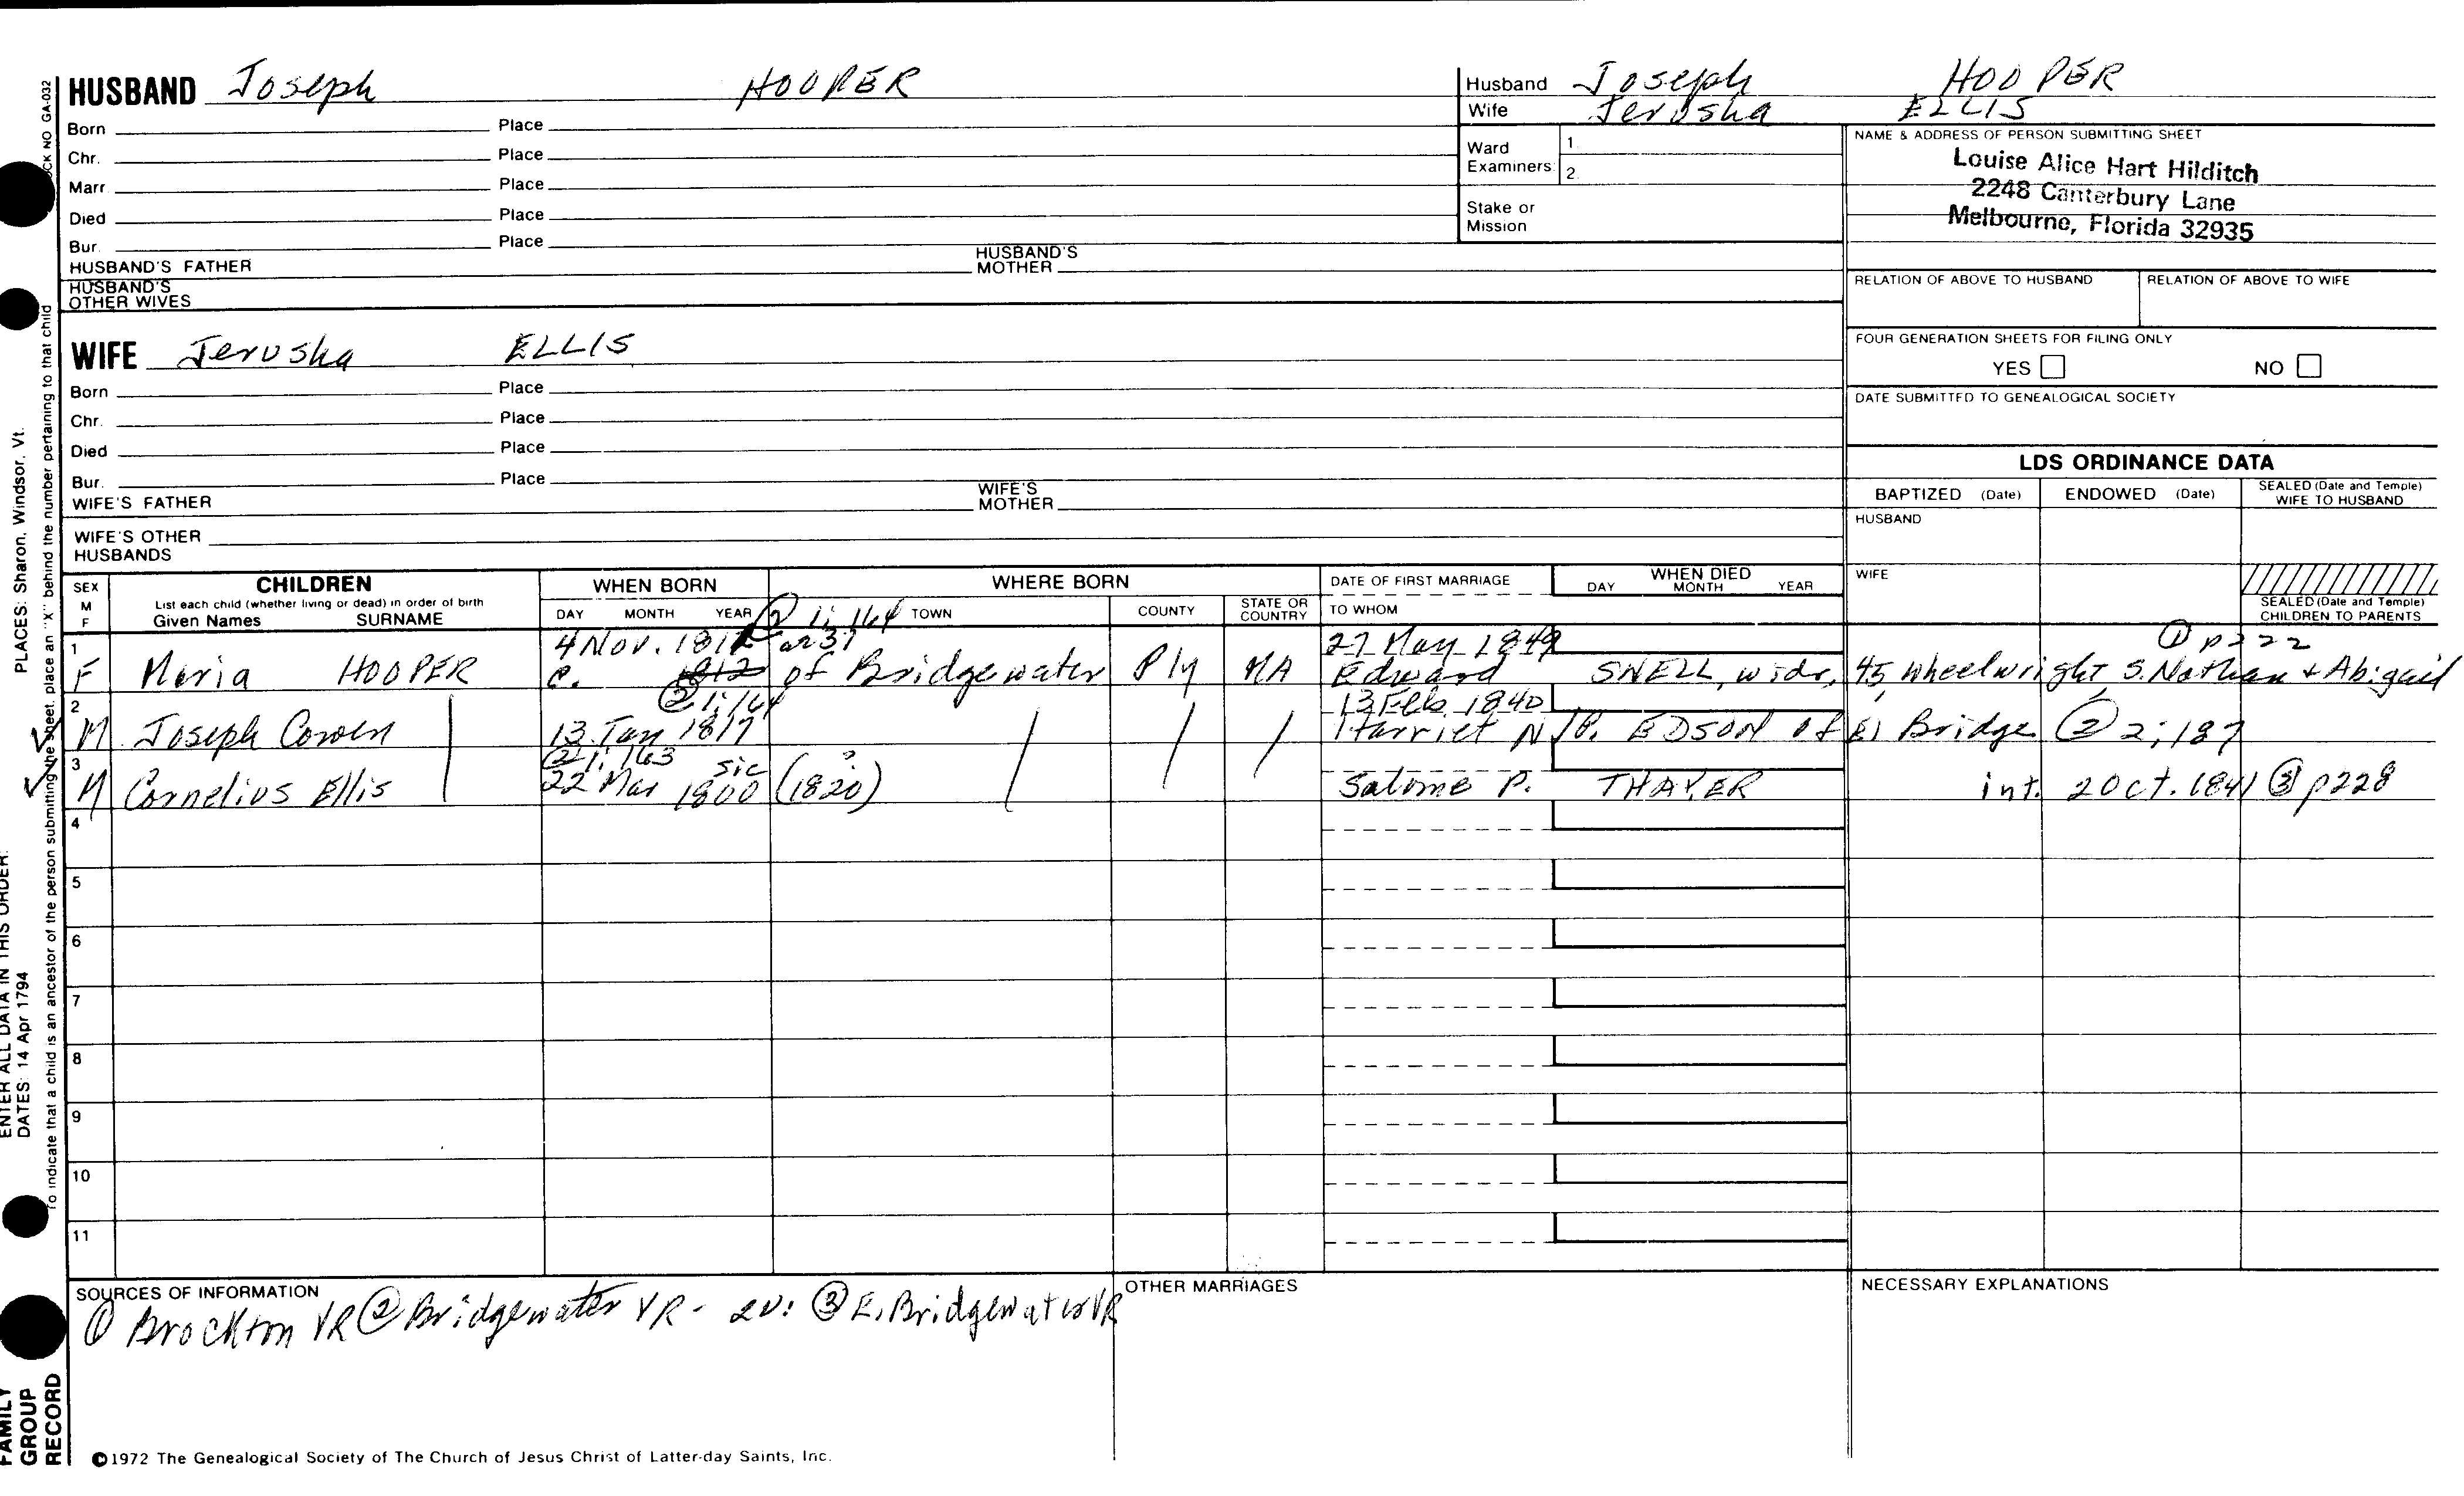 HUSBAND Joseph HOOPER
Born Place
Chr. Place
Marr. Place
Died Place
Bur. Place
HUSBAND'S FATHER HUSBAND'S MOTHER
HUSBAND'S OTHER WIVES
WIFE Jerusha ELLIS
Born Place
Chr. Place
Died Place
Bur. Place
WIFE'S FATHER WIFE'S MOTHER
WIFE'S OTHER HUSBANDS
Husband Joseph HOOPER
Wife Jerusha ELLIS
Ward Examiners: 1. 2.
Stake or Mission
NAME & ADDRESS OF PERSON SUBMITTING SHEET
Louise Alice Hart Hilditch
2248 Canterbury Lane
Melbourne, Florida 32935
RELATION OF ABOVE TO HUSBAND RELATION OF ABOVE TO WIFE
FOUR GENERATION SHEETS FOR FILING ONLY
YES NO
DATE SUBMITTED TO GENEALOGICAL SOCIETY
LDS ORDINANCE DATA
BAPTIZED (Date) ENDOWED (Date) SEALED (Date and Temple) WIFE TO HUSBAND
HUSBAND
WIFE
SEALED (Date and Temple) CHILDREN TO PARENTS
SEX M F
CHILDREN
List each child (whether living or dead) in order of birth
Given Names SURNAME
WHEN BORN
DAY MONTH YEAR
WHERE BORN
TOWN COUNTY STATE OR COUNTRY
DATE OF FIRST MARRIAGE
TO WHOM
WHEN DIED
DAY MONTH YEAR
② 1:164
1 4 Nov. 1812 ae 37 27 May 1849 ① p222
F Maria HOOPER c. 1812 of Bridgewater Ply MA Edward SNELL, widr, 45, wheelwright S. Nathan & Abigail
2 ② 1:164 13 Feb 1840
M Joseph Cowen 13 Jan 1817 Harriet N/B. EDSON of E. Bridge ② 2:187
3 ② 1:163 sic ?
M Cornelius Ellis 22 Mar 1800 (1820) Salome P. THAYER int. 2 Oct. 1841 ③ p228
4
5
6
7
8
9
10
11
SOURCES OF INFORMATION
① Brockton VR ② Bridgewater VR - 2v: ③ E. Bridgewater VR
OTHER MARRIAGES
NECESSARY EXPLANATIONS
©1972 The Genealogical Society of The Church of Jesus Christ of Latter-day Saints, Inc.
FAMILY GROUP RECORD
ENTER ALL DATA IN THIS ORDER:
DATES: 14 Apr 1794
PLACES: Sharon, Windsor, Vt.
To indicate that a child is an ancestor of the person submitting the sheet, place an "X" behind the number pertaining to that child
NO GA-032